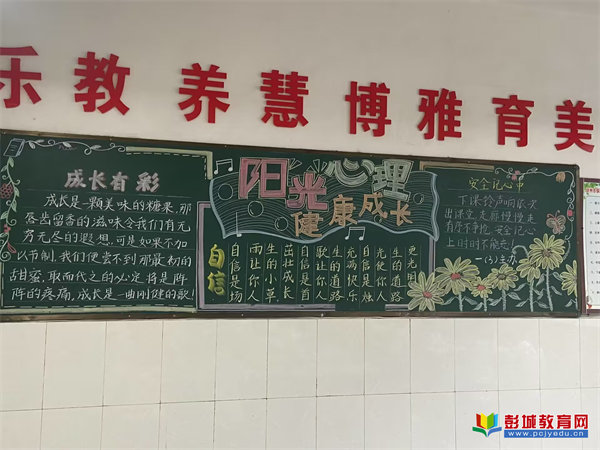 乐教 养慧 博雅 育美
成长有彩
成长是一颗美味的糖果,那
唇齿留香的滋味令我们有无
穷无尽的遐想,可是如果不加
以节制,我们便尝不到那最初的
甜蜜,取而代之的必定将是阵
阵的疼痛,成长是一曲刚健的歌!
阳光心理
健康成长
自信
自信是场
雨让你人
生的小草
茁壮成长
自信是首
歌让你人
生的道路
充满快乐
自信是烛
光使你人
生的道路
更光明
安全记心中
下课铃声响依次
出课堂,走廊慢慢走
有序不争抢,安全记心
上时时不能忘!
一(3)主办
彭城教育网
www.pcjyedu.cn